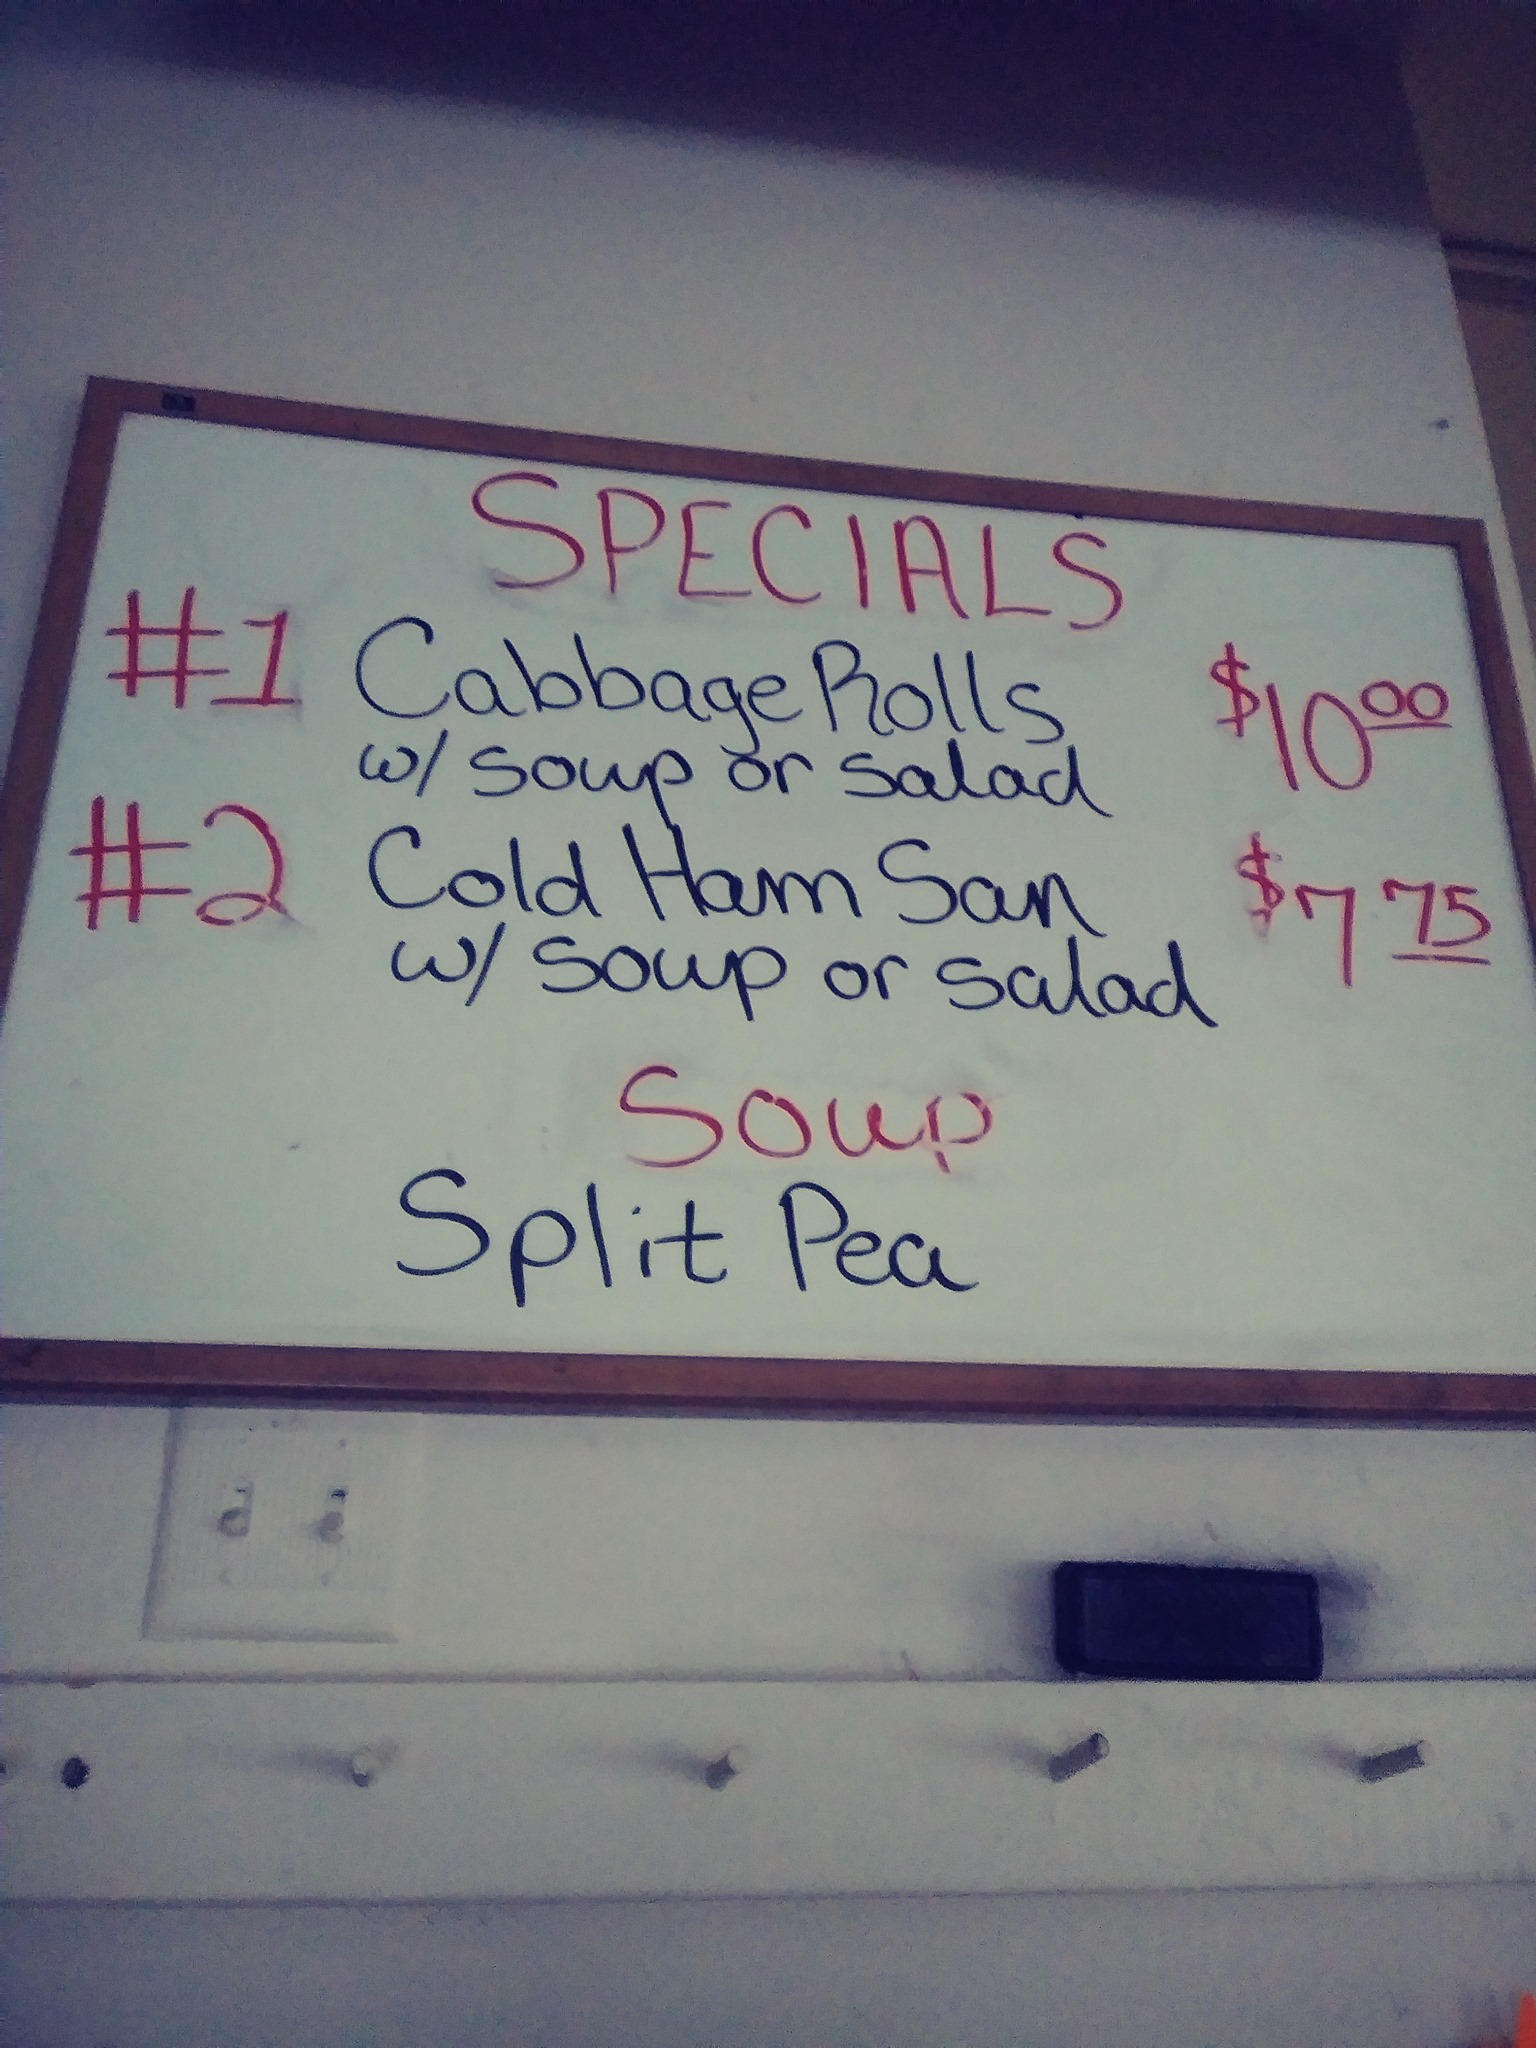 SPECIALS
#1 Cabbage Rolls $10 00
w/ soup or salad
#2 Cold Ham San $7 75
w/ soup or salad
Soup
Split Pea